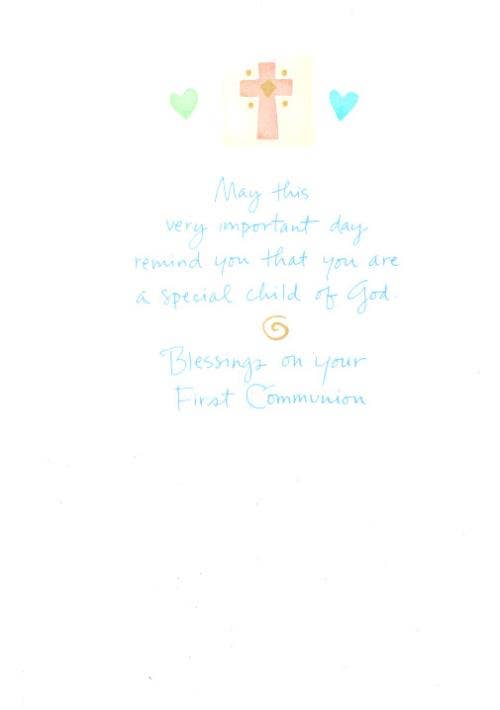 May this
very important day
remind you that you are
a special child of God.
Blessings on your
First Communion